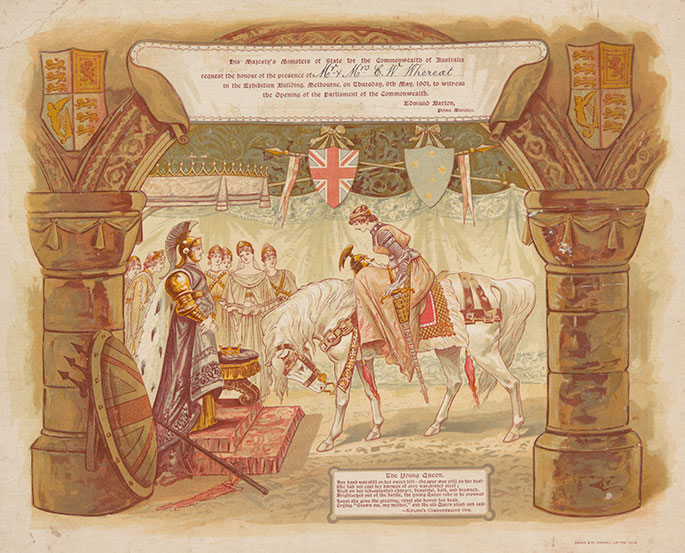 His Majesty's Ministers of State for the Commonwealth of Australia
request the honour of the presence of Mr & Mrs E. W. Whereat
in the Exhibition Building, Melbourne, on Thursday, 9th May, 1901, to witness
the Opening of the Parliament of the Commonwealth.
Edmund Barton,
Prime Minister.
The Young Queen.
Her hand was still on her sword hilt—the spur was still on her heel—
She had not cast her harness of grey war-dinted steel;
High on her red-splashed charger, beautiful, bold, and browned,
Bright-eyed out of the battle, the young Queen rode to be crowned
Royal she gave the greeting, royal she bowed her head,
Crying "Crown me, my mother," and the old Queen stood and said
—Kipling's Commonwealth Ode.